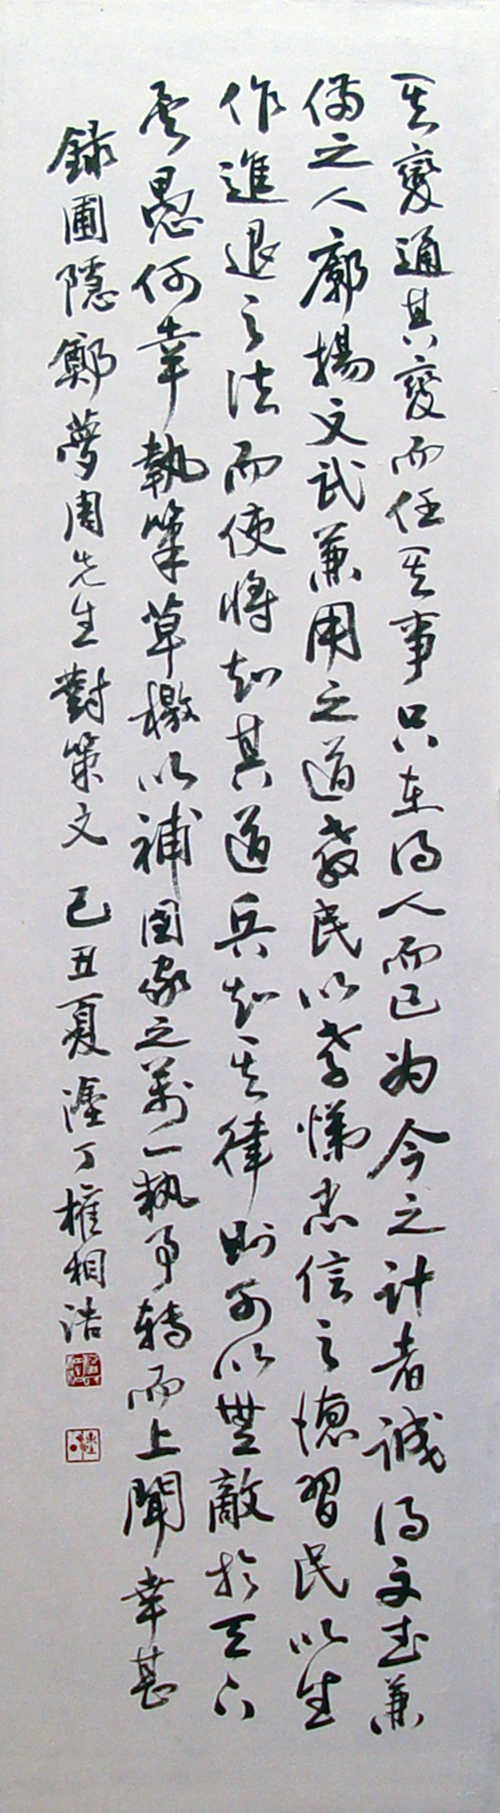 其變通其變而任其事只在得人而已為今之計者誠得文武兼
備之人廓揚文武兼用之道教民以孝悌忠信之德習民以坐
作進退之法而使將知其道兵知其律則可以無敵於天下
矣愚何幸執筆草檄以補国家之萬一執事轉而上聞幸甚
錄圃隱鄭夢周先生對策文 己丑夏 塗丁權相浩